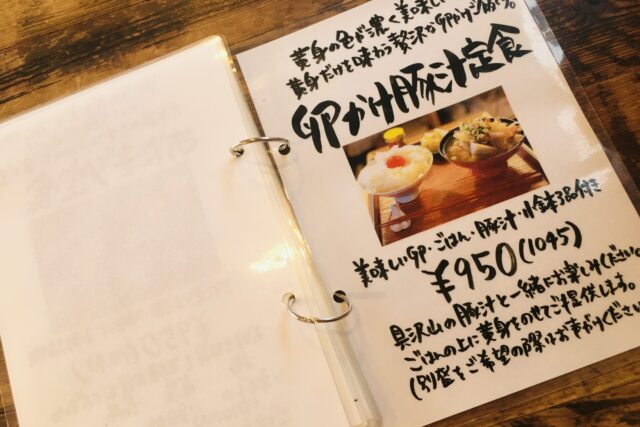 黄身の色が濃く美味しい
黄身だけを味わう贅沢な卵かけご飯。
卵かけ豚汁定食
美味しい卵・ごはん・豚汁・小鉢3品付き
¥950(1045)
具沢山の豚汁と一緒にお楽しみください
ごはんの上に黄身をのせてご提供します。
(別盛をご希望の際はお声がけください